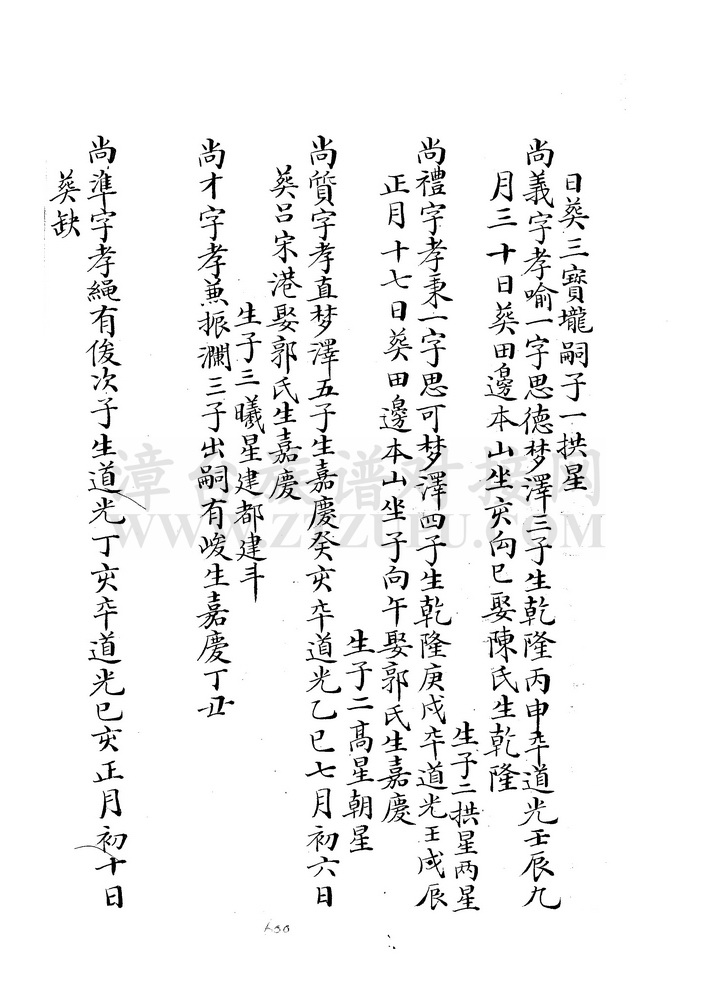 日葬三寶壠嗣子一拱星
尚義字孝喻一字思德梦澤三子生乾隆丙申卒道光壬辰九
月三十日葬田邊本山坐亥向巳娶陳氏生乾隆
生子二拱星两星
尚禮字孝秉一字思可梦澤四子生乾隆庚戌卒道光壬戌辰
正月十七日葬田邊本山坐子向午娶郭氏生嘉慶
生子二高星朝星
尚質字孝直梦澤五子生嘉慶癸亥卒道光乙巳七月初六日
葬呂宋港娶郭氏生嘉慶
生子三曦星建都建斗
尚才字孝兼振瀾三子出嗣有峻生嘉慶丁丑
尚準字孝繩有俊次子生道光丁亥卒道光己亥正月初十日
葬缺
漳台族谱对接网
WWW.ZTZUPU.COM